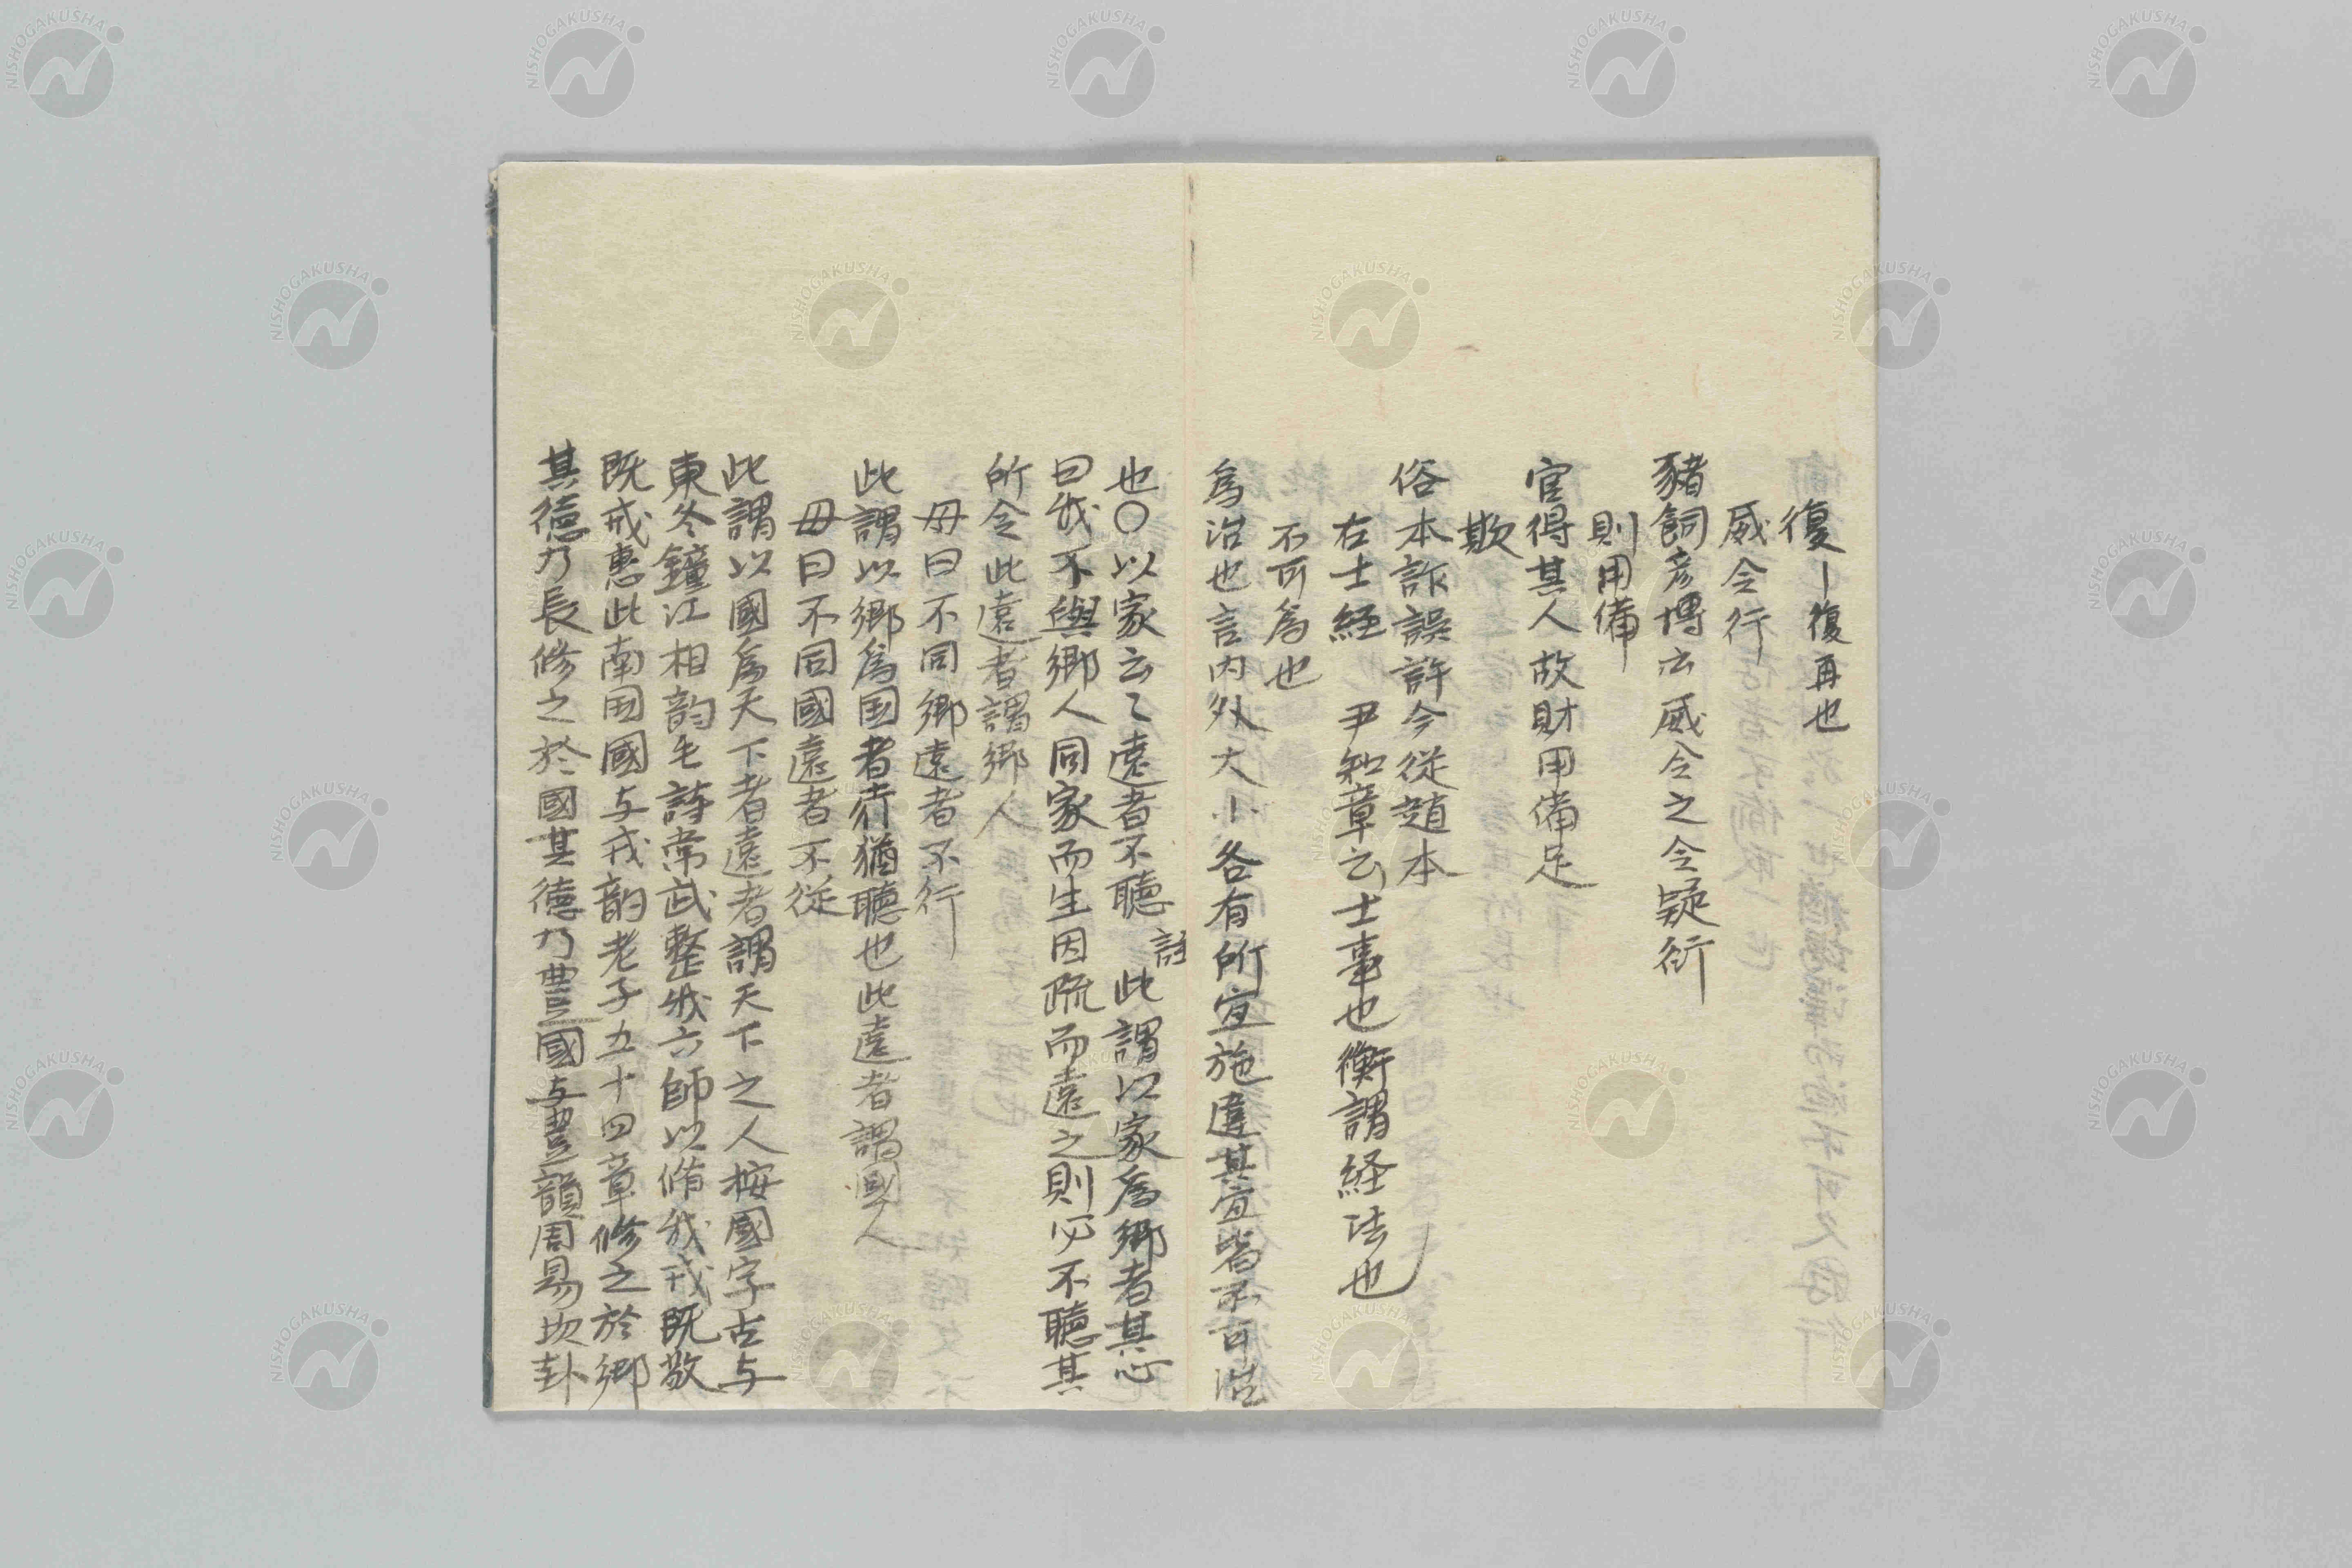 復〡復再也
威令行
豬飼彦博云威令之令疑衍
則用備
官得其人故財用備足
欺
俗本詐誤許今從趙本
右士經　尹知章云士事也衡謂経法也
不可為也
為治也言内外大小各有所宜施違其宜皆不可治
也〇以家云々遠者不聽　註此謂以家為鄉者其心
曰我不與鄉人同家而生因疏而遠之則必不聽其
所令此遠者謂鄉人
毋曰不同鄉遠者不行
此謂以鄉為国者行猶聽也此遠者謂國人
毋曰不同國遠者不從
此謂以國為天下者遠者謂天下之人按國字古与
東冬鐘江相韵毛詩常武整我六師以脩我戎既敬
既戒惠此南国國与戎韵老子五十四章修之於鄉
其德乃長修之於國其德乃豊國与豊韻周易坎卦
NISHOGAKUSHA